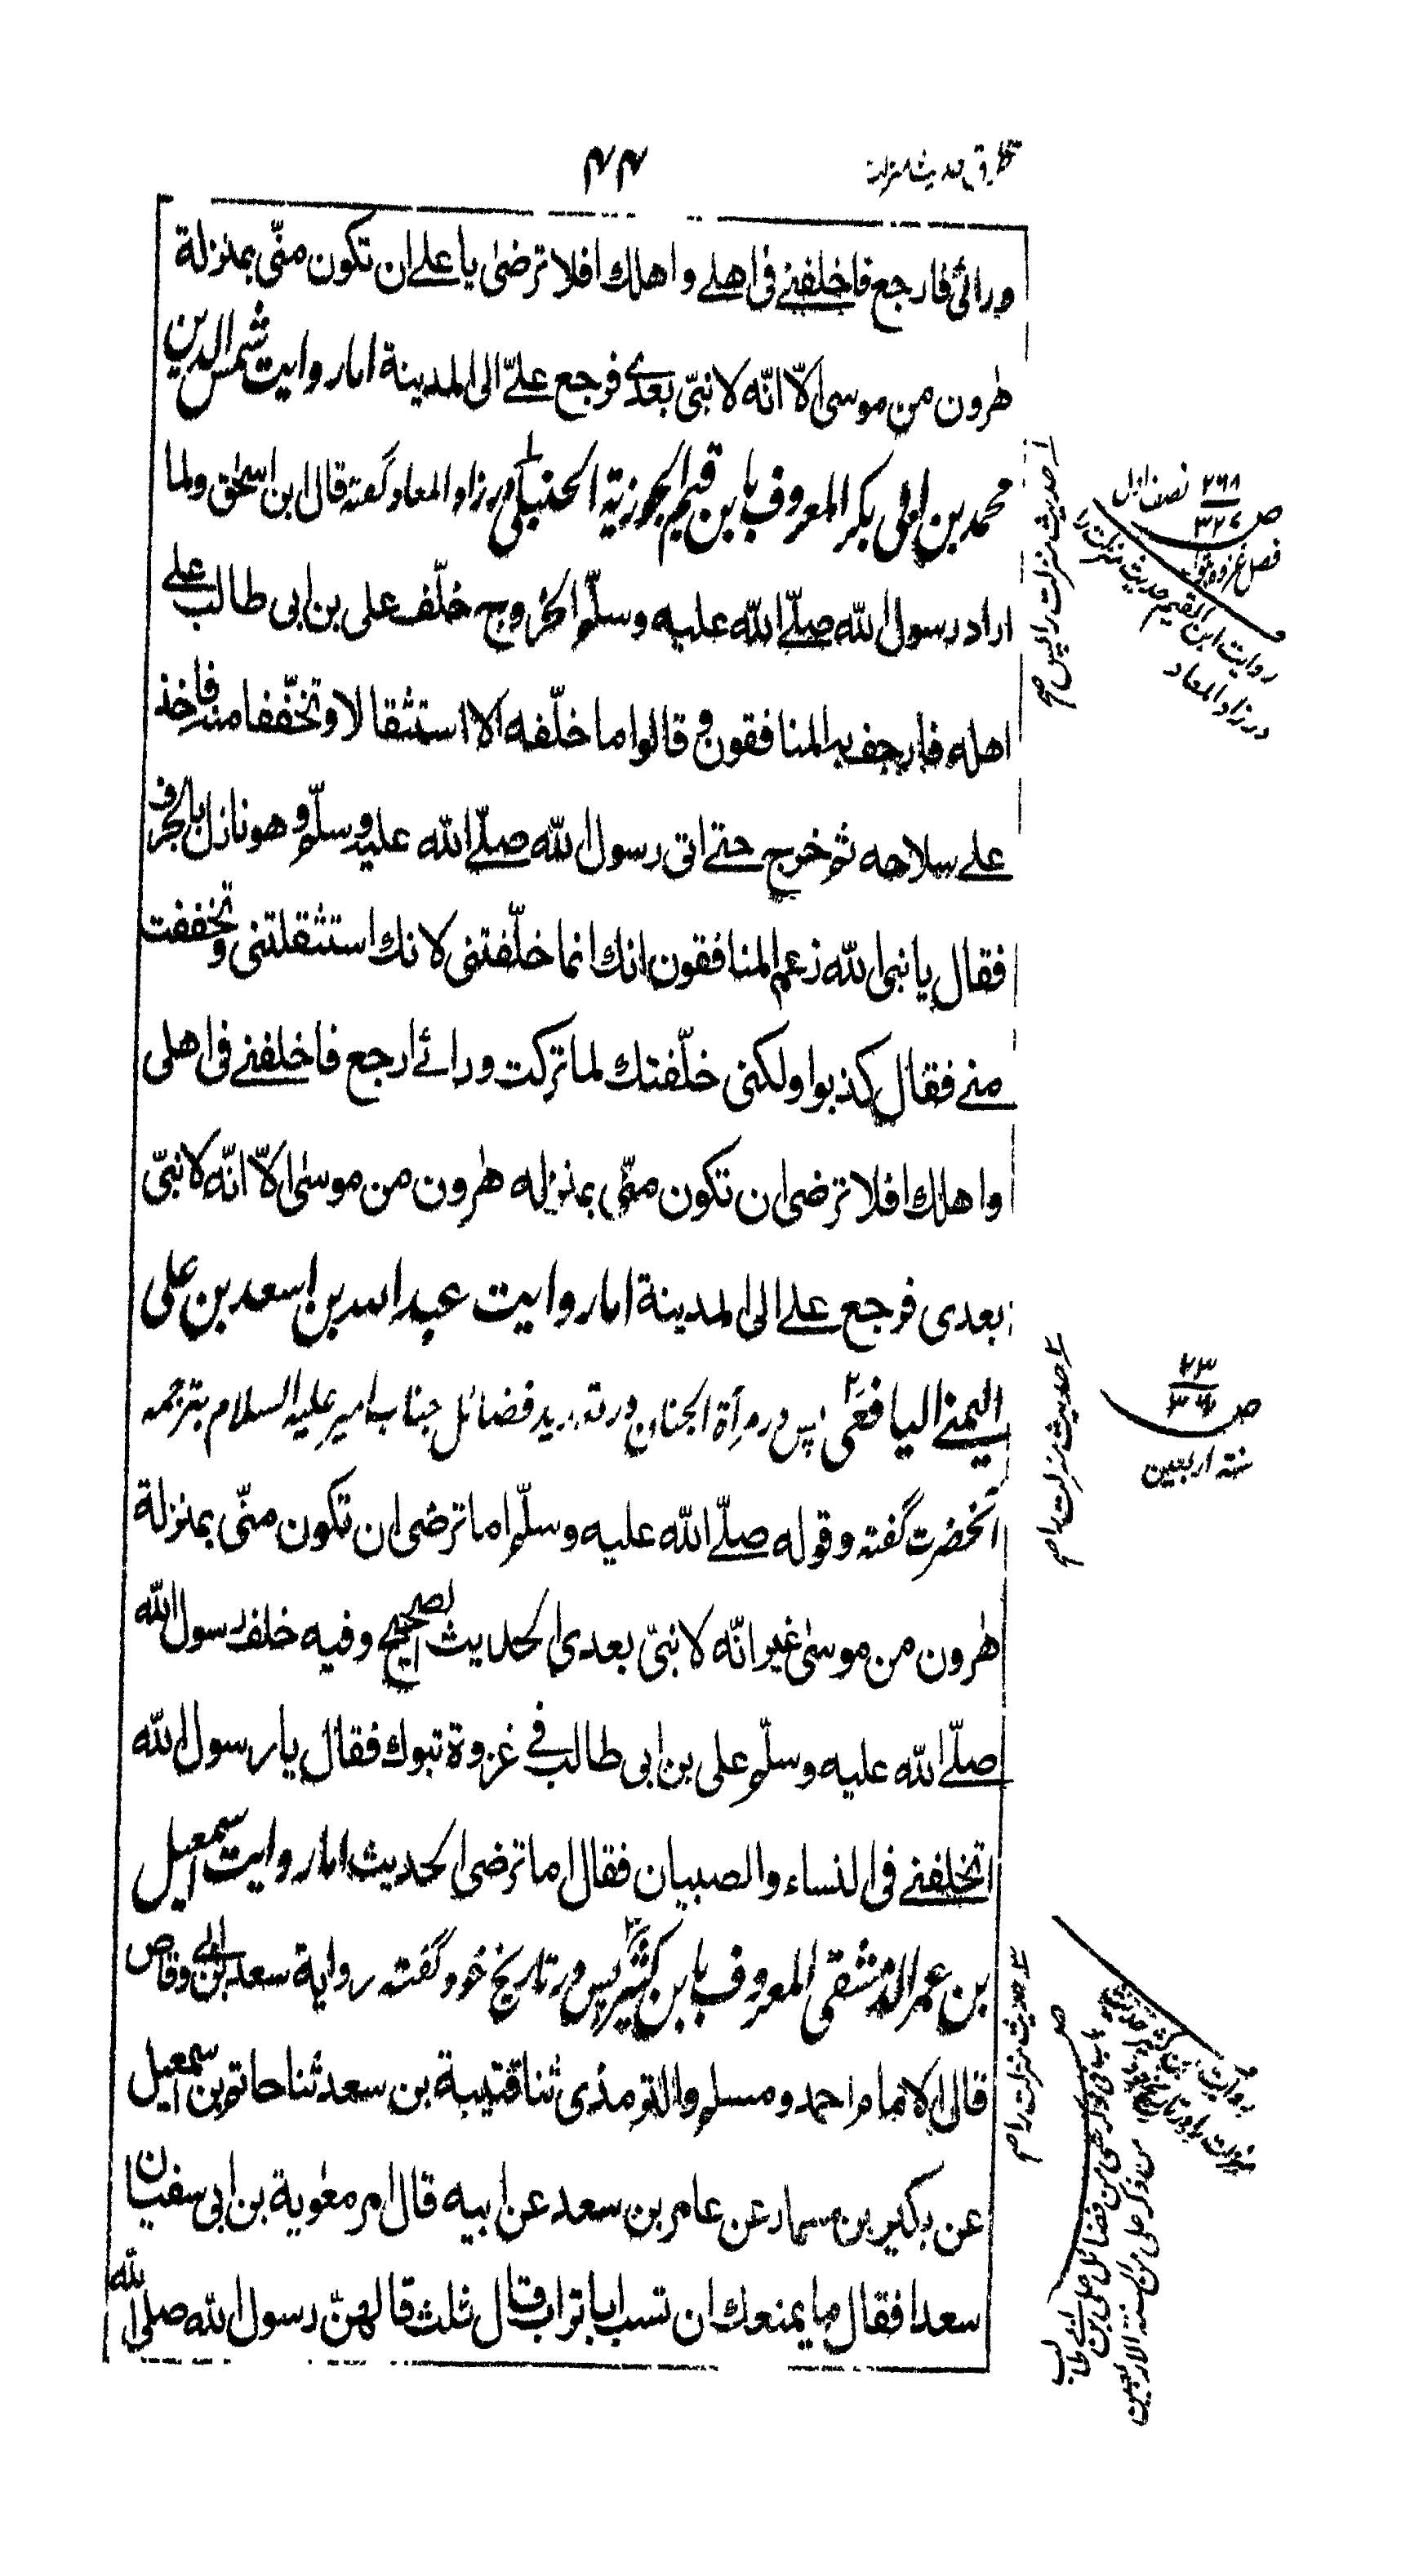 طرق حدیث منزلت
۴۴
ورائی فارجع فاخلفنے فی اهلے و اهلك افلا ترضیٰ یا علے ان تکون منّی بمنزلة
هٰرون من موسی الّا انّه لا نبیّ بعدے فرجع علےّ الی المدینة اما روایت شمس الدین
محمد بن ابی بکر المعروف بابن قیم الجوزیة الحنبلی پس در زاد المعاد گفته قال ابن اسحٰق ولما
اراد رسول الله صلّے الله علیه وسلّم الخروج خلّف علی بن ابی طالب علے
اهله فارجف به المنافقون و قالوا ما خلّفه الا استثقالا وتخفّفا منه فاخذ
علے سلاحه ثم خرج حتے اتی رسول الله صلّے الله علیه وسلّم و هو نازل بالجرف
فقال یا نبی الله زعم المنافقون انك انما خلّفتنی لانك استثقلتنی وتخففت
منے فقال کذبوا ولکنی خلّفتك لما ترکت ورائے ارجع فاخلفنے فی اهلی
واهلك افلا ترضی ان تکون منّی بمنزله هٰرون من موسیٰ الّا انّه لا نبیّ
بعدی فرجع علے الی المدینة اما روایت عبد الله بن اسعد بن علی
الیمنے الیافعی پس در مرآة الجنان در فضائل جناب امیر علیه السلام بترجمه
انحضرت گفته وقوله صلّے الله علیه وسلّم اما ترضی ان تکون منّی بمنزلة
هٰرون من موسیٰ غیر انّه لا نبیّ بعدی الحدیث الصحیح وفیه خلف رسول الله
صلّے الله علیه وسلّم علی بن ابی طالب فے غزوة تبوك فقال یا رسول الله
اتخلفنے فی النساء والصبیان فقال اما ترضی الحدیث اما روایت اسمعیل
بن عمر الدمشقی المعروف بابن کثیر پس در تاریخ خود گفته روایة سعد بن ابی وقاص
قال الامام احمد ومسلم والترمذی ثنا قتیبة بن سعد ثنا حاتم بن اسمعیل
عن بکیر بن مسمار عن عامر بن سعد عن ابیه قال امر معٰویة بن ابی سفیان
سعدا فقال ما یمنعك ان تسب ابا تراب قال ثلث قالهنّ رسول الله صلی الله
۱ حدیث منزلت را پس
ص ۲۶۸ نصف اول
۳۲۶
فصل غزوه تبوك
روایت ابن القیم حدیث منزلت را
در زاد المعاد
۲ حدیث منزلت را
ص ۲۳
سنه اربعین
۳ حدیث منزلت را
روایت ابن کثیر حدیث
منزلت را در تاریخ
من فضائل علی بن ابی طالب